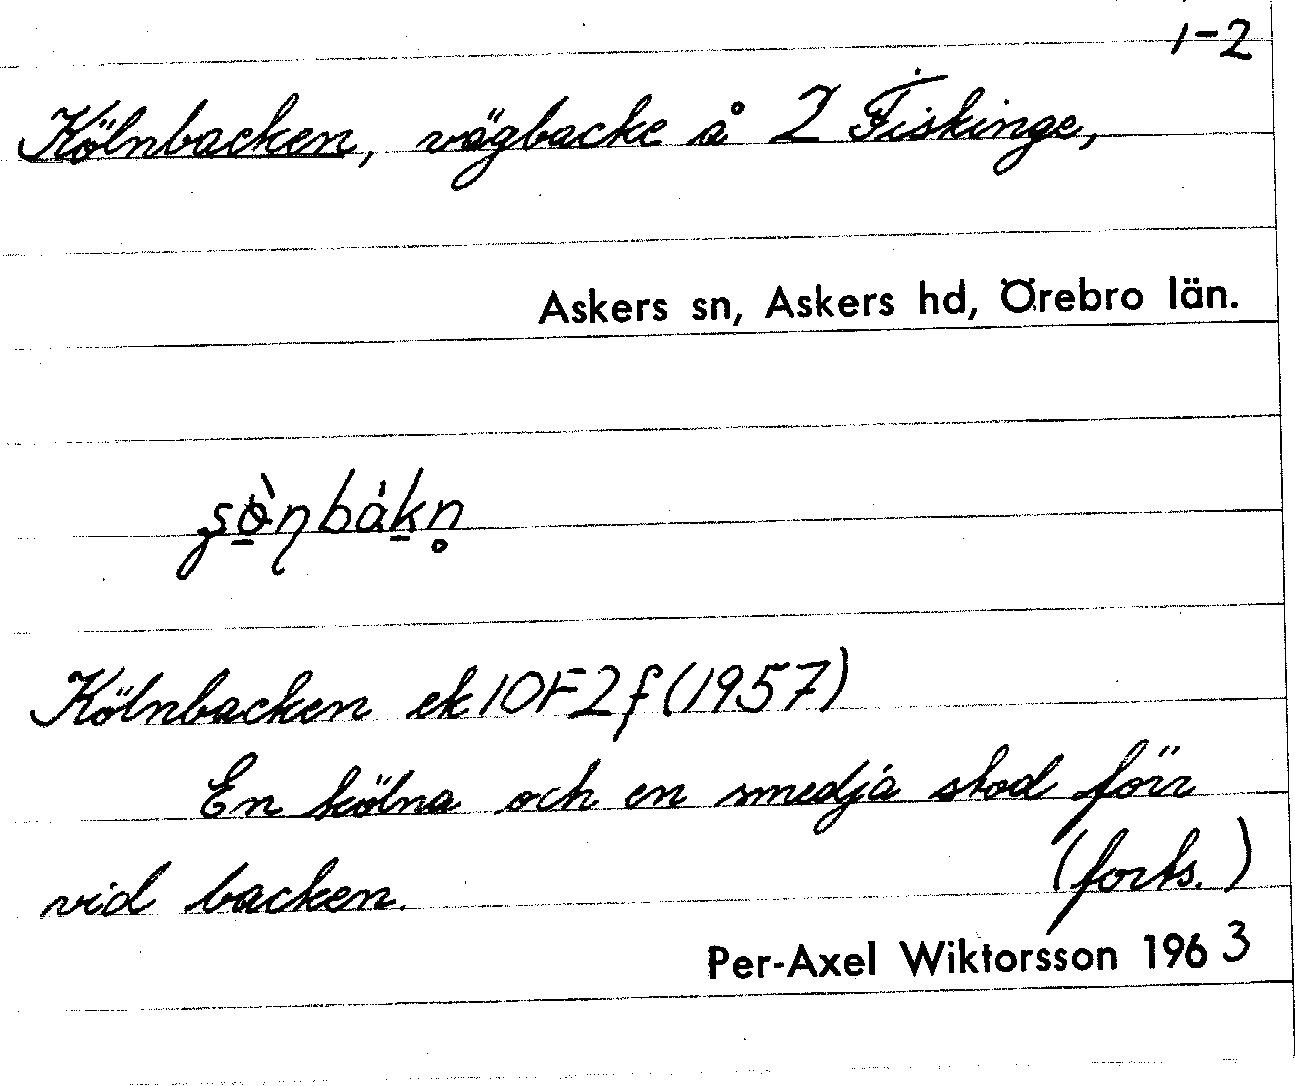 1-2
Kölnbacken, vägbacke å 2 Fiskinge,
Askers sn, Askers hd, Örebro län.
Kölnbacken ek 10F2f (1957)
En kölna och en smedja stod förr
vid backen. (forts.)
Per-Axel Wiktorsson 1963